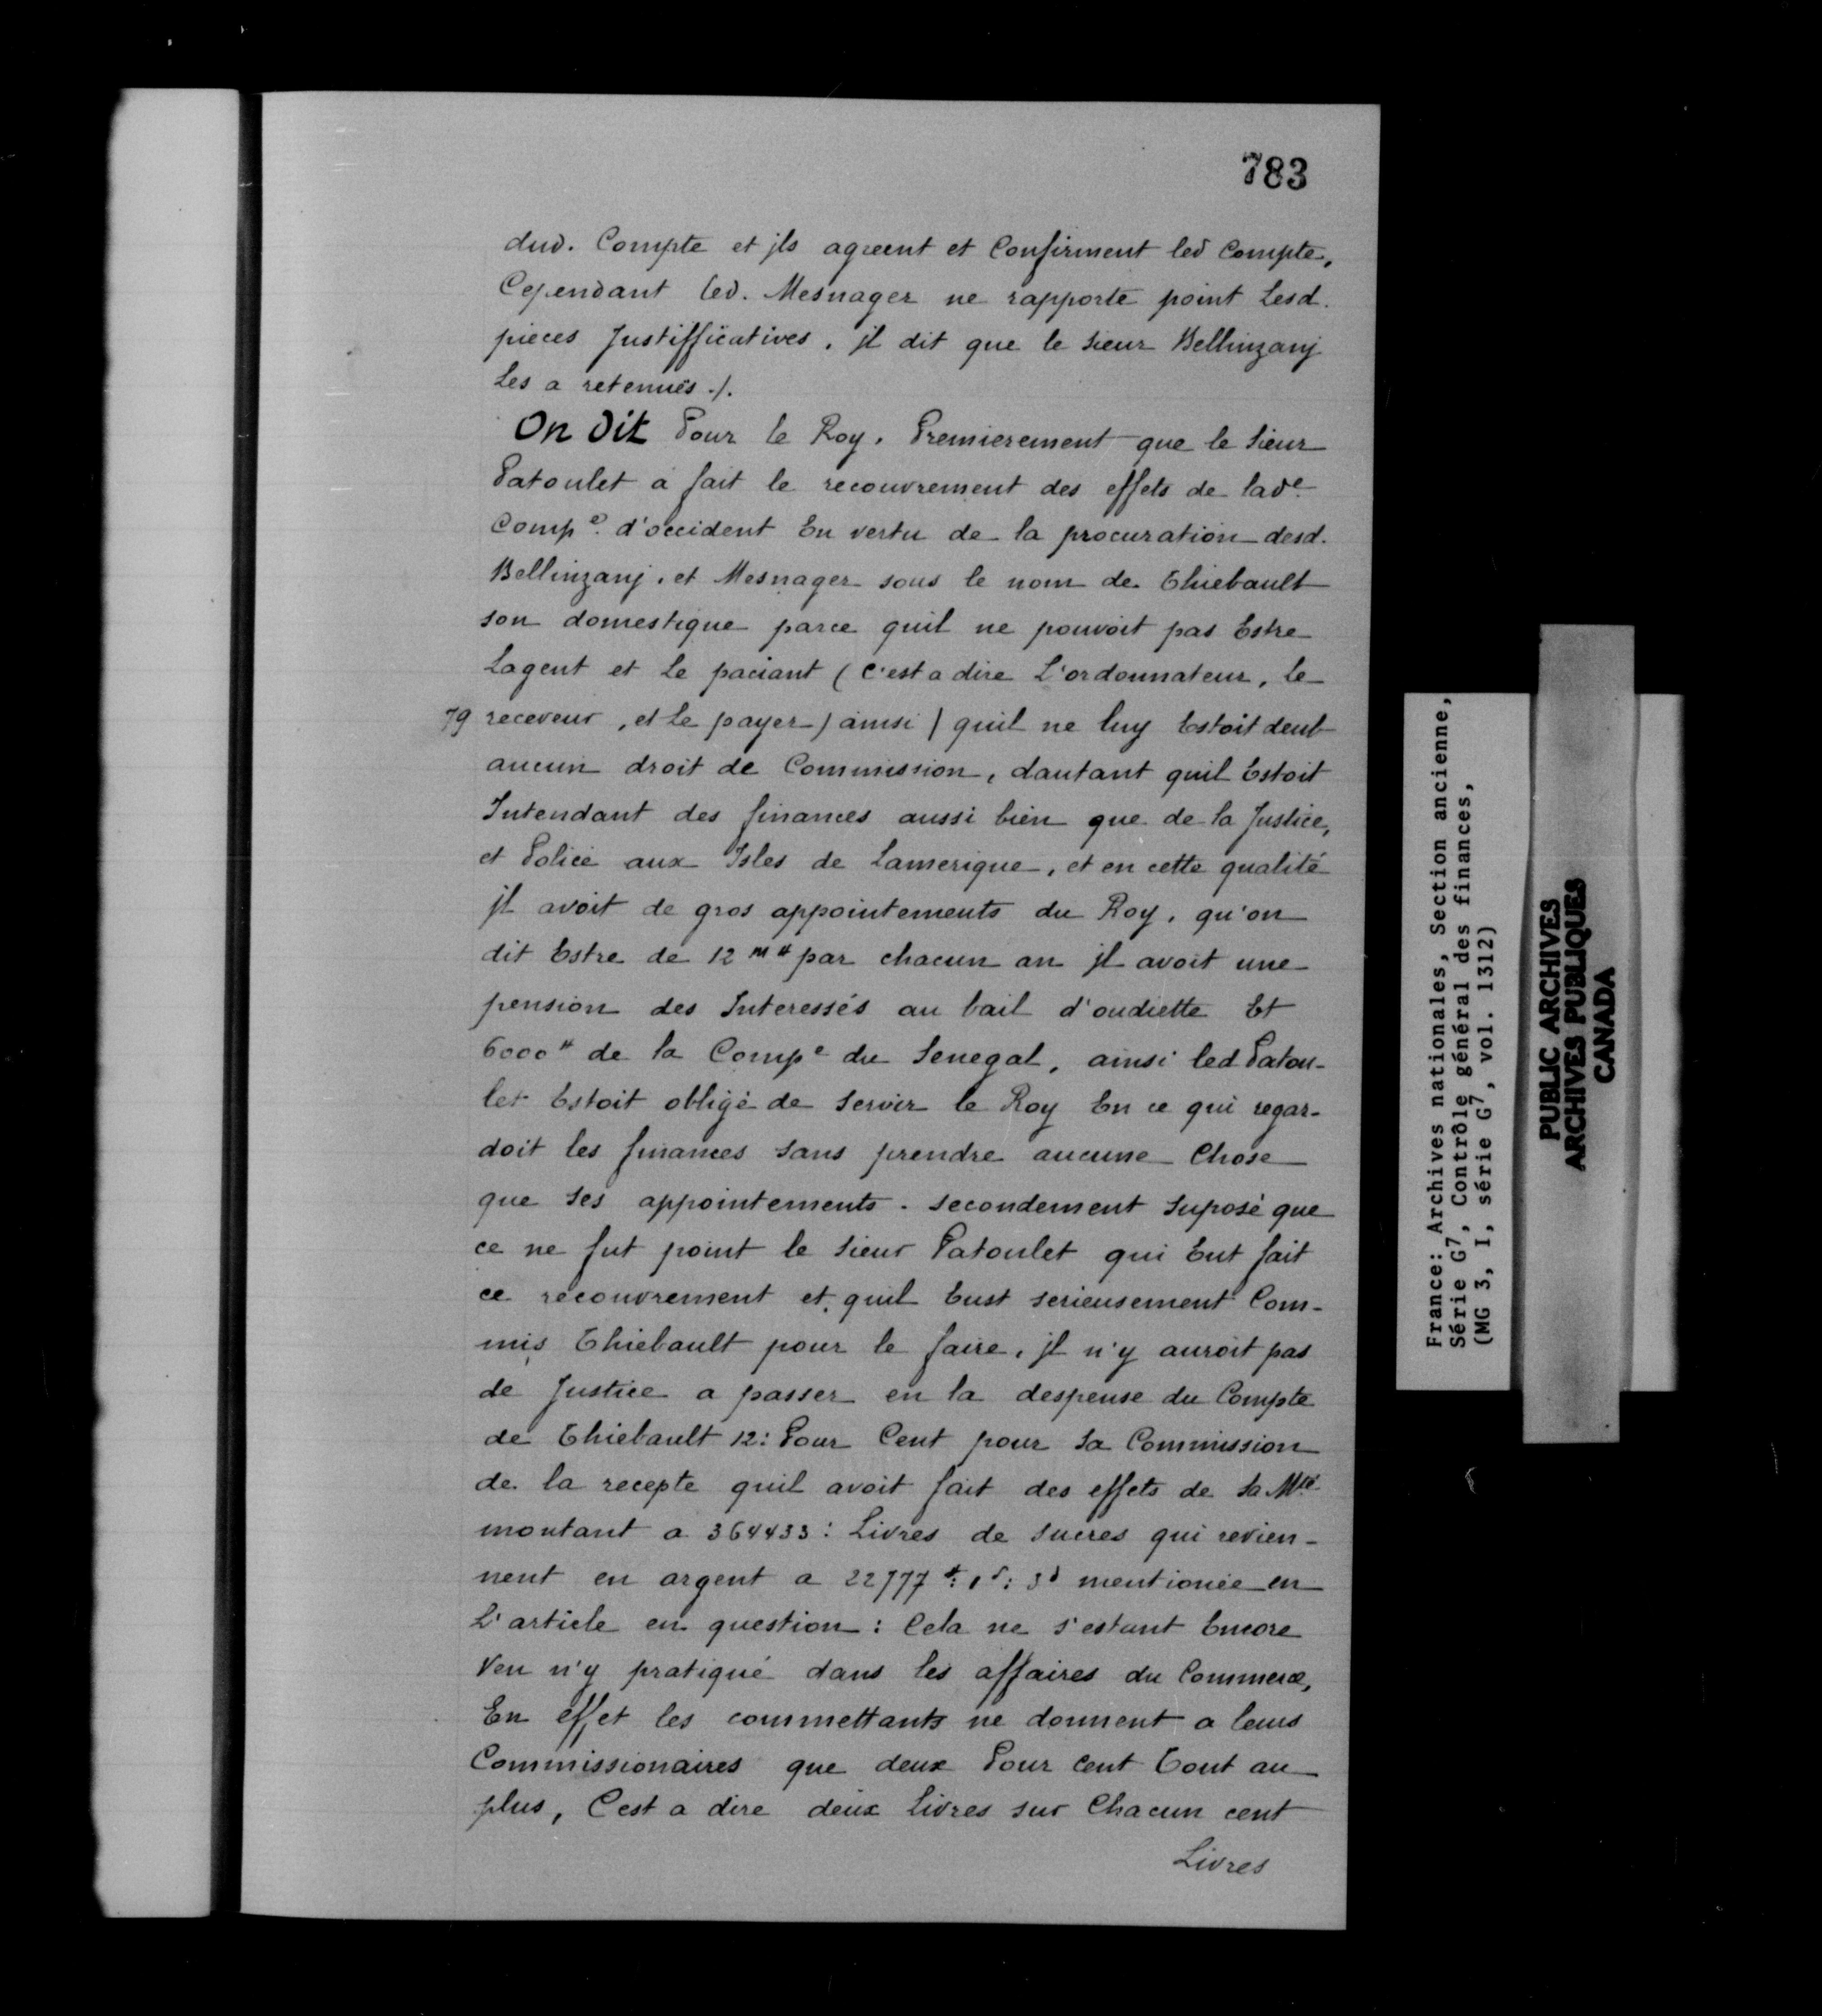 783
dud. Compte et jls agreent et Confirment led Compte,
Cependant led. Mesnager ne rapporte point Lesd.
pieces Justifficatives, jl dit que le sieur Bellinzanj
Les a retenuës./.
On Dit Pour le Roy, Premierement que le sieur
Patoulet a fait le recouvrement des effets de lade
Compe. d'occident En vertu de la procuration desd.
Bellinzanj, et Mesnager sous le nom de Thiebault
son domestique parce quil ne pouvoit pas Estre
Lagent et Le paciant (C'est a dire L'ordonnateur, le
79 receveur, et Le payer) ainsi / quil ne luy Estoit deub
aucun droit de Commission, dautant quil Estoit
Intendant des finances aussi bien que de la Justice,
et Police aux Isles de Lamerique, et en cette qualité
jl avoit de gros appointements du Roy, qu'on
dit Estre de 12 m# par chacun an jl avoit une
pension des Interessés au bail d'oudiette Et
6000# de la Compe du Senegal, ainsi led Patou-
let Estoit obligé de servir le Roy En ce qui regar-
doit les finances sans prendre aucune Chose
que ses appointements. secondement suposé que
ce ne fut point le sieur Patoulet qui Eut fait
ce recouvrement et quil Eust serieusement Com-
mis Thiebault pour le faire, jl n'y auroit pas
de Justice a passer en la despense du Compte
de Thiebault 12: Pour Cent pour sa Commission
de la recepte quil avoit fait des effets de Sa Mté
montant a 364433: Livres de sucres qui revien-
nent en argent a 22777#: 1s: 3d mentionée en
L'article en question: Cela ne s'estant Encore
Veu n'y pratiqué dans les affaires du Commerce,
En effet les commettants ne donnent a leurs
Commissionaires que deux Pour cent Tout au
plus, C'est a dire deux Livres sur Chacun cent
Livres
France: Archives nationales, Section ancienne,
Série G7, Contrôle général des finances,
(MG 3, I, série G7, vol. 1312)
PUBLIC ARCHIVES
ARCHIVES PUBLIQUES
CANADA